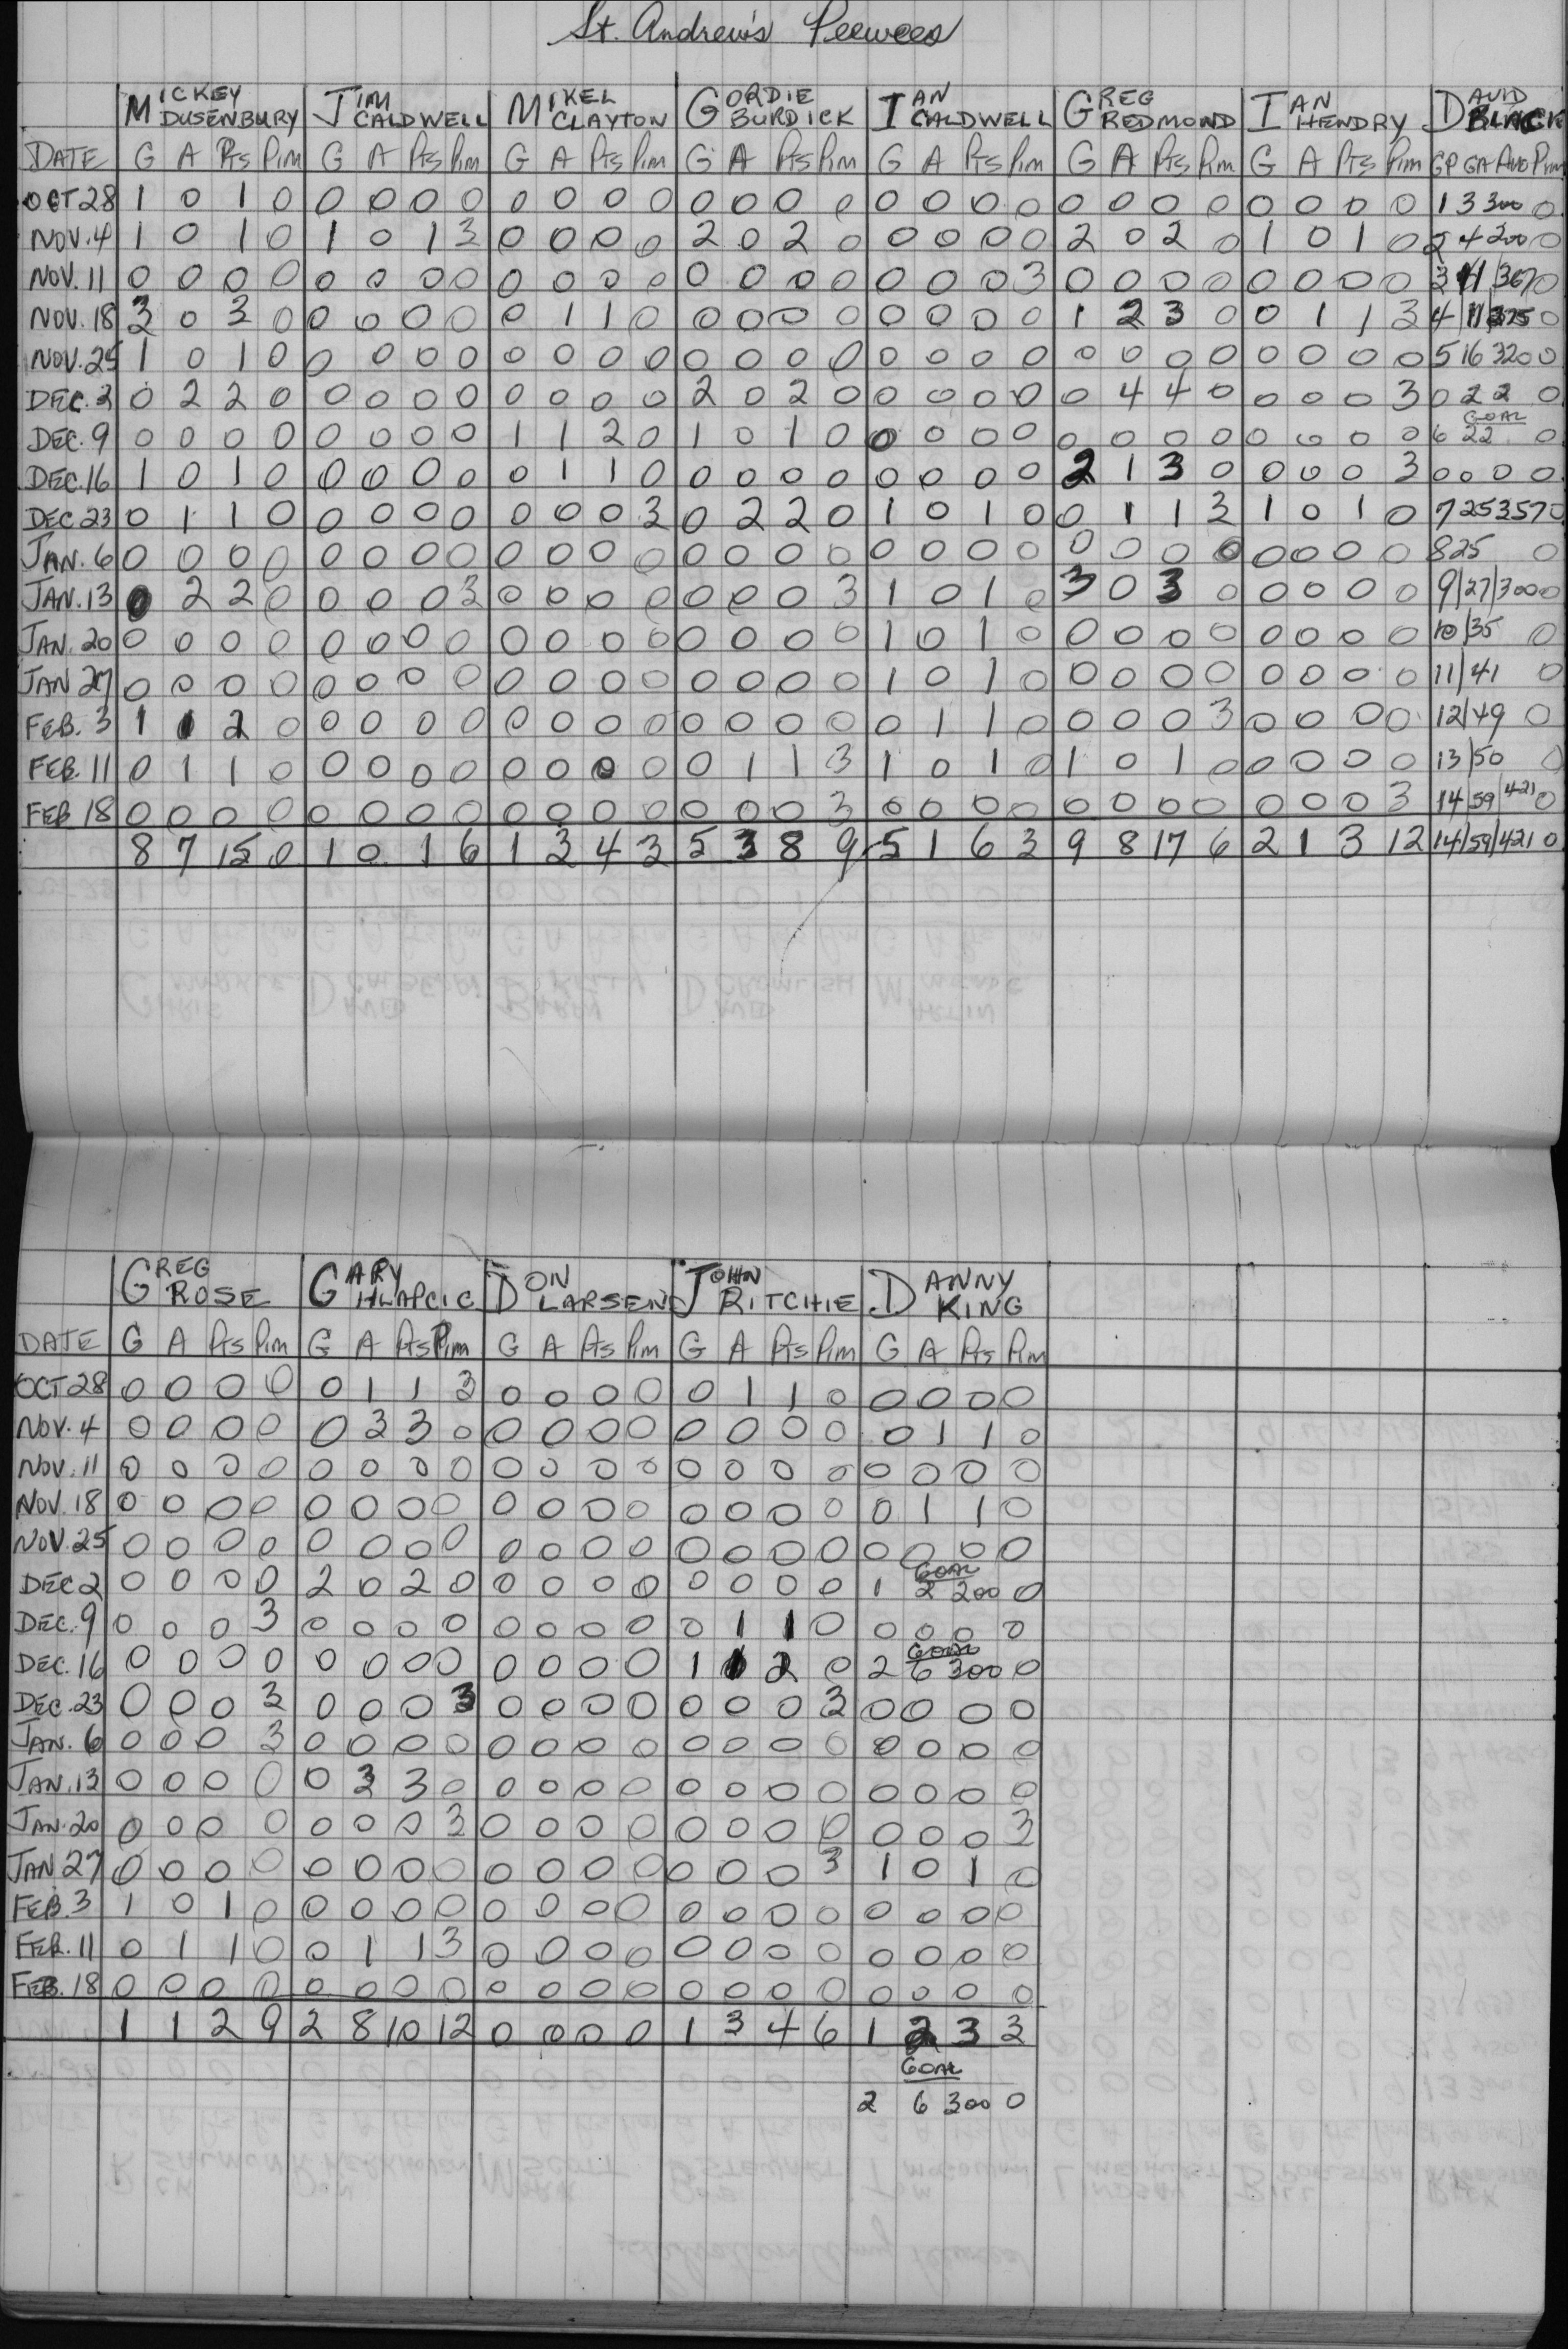 St. Andrew's Peewees
MICKEY DUSENBURY JIM CALDWELL MIKEL CLAYTON GORDIE BURDICK IAN CALDWELL GREG REDMOND IAN HENDRY DAVID BLACK
DATE G A Pts Pim G A Pts Pim G A Pts Pim G A Pts Pim G A Pts Pim G A Pts Pim G A Pts Pim GP GA AVG Pim
OCT 28 1 0 1 0 0 0 0 0 0 0 0 0 0 0 0 0 0 0 0 0 0 0 0 0 0 0 0 0 1 3 300 0
NOV. 4 1 0 1 0 1 0 1 3 0 0 0 0 2 0 2 0 0 0 0 0 2 0 2 0 1 0 1 0 2 4 200 0
NOV. 11 0 0 0 0 0 0 0 0 0 0 0 0 0 0 0 0 0 0 0 3 0 0 0 0 0 0 0 0 3 11 367 0
NOV. 18 3 0 3 0 0 0 0 0 0 1 1 0 0 0 0 0 0 0 0 0 1 2 3 0 0 1 1 3 4 11 275 0
NOV. 25 1 0 1 0 0 0 0 0 0 0 0 0 0 0 0 0 0 0 0 0 0 0 0 0 0 0 0 0 5 16 320 0
DEC. 2 0 2 2 0 0 0 0 0 0 0 0 0 2 0 2 0 0 0 0 0 0 4 4 0 0 0 0 3 0 2 2 0
DEC. 9 0 0 0 0 0 0 0 0 1 1 2 0 1 0 1 0 0 0 0 0 0 0 0 0 0 0 0 0 6 22 GOAL 0
DEC. 16 1 0 1 0 0 0 0 0 0 1 1 0 0 0 0 0 0 0 0 0 2 1 3 0 0 0 0 3 0 0 0 0
DEC 23 0 1 1 0 0 0 0 0 0 0 0 3 0 2 2 0 1 0 1 0 0 1 1 3 1 0 1 0 7 25 357 0
JAN. 6 0 0 0 0 0 0 0 0 0 0 0 0 0 0 0 0 0 0 0 0 0 0 0 0 0 0 0 0 8 25 0
JAN. 13 0 2 2 0 0 0 0 3 0 0 0 0 0 0 0 3 1 0 1 0 3 0 3 0 0 0 0 0 9/27/300 0
JAN. 20 0 0 0 0 0 0 0 0 0 0 0 0 0 0 0 0 1 0 1 0 0 0 0 0 0 0 0 0 10/35 0
JAN 27 0 0 0 0 0 0 0 0 0 0 0 0 0 0 0 0 1 0 1 0 0 0 0 0 0 0 0 0 11/41 0
FEB. 3 1 1 2 0 0 0 0 0 0 0 0 0 0 0 0 0 0 1 1 0 0 0 0 3 0 0 0 0 12/49 0
FEB. 11 0 1 1 0 0 0 0 0 0 0 0 0 0 1 1 3 1 0 1 0 1 0 1 0 0 0 0 0 13/50 0
FEB 18 0 0 0 0 0 0 0 0 0 0 0 0 0 0 0 3 0 0 0 0 0 0 0 0 0 0 0 3 14/59/421 0
8 7 15 0 1 0 1 6 1 3 4 3 5 3 8 9 5 1 6 3 9 8 17 6 2 1 3 12 14/59/421 0
GREG ROSE GARY HLAPCIC DON LARSEN JOHN RITCHIE DANNY KING
DATE G A Pts Pim G A Pts Pim G A Pts Pim G A Pts Pim G A Pts Pim
OCT 28 0 0 0 0 0 1 1 3 0 0 0 0 0 1 1 0 0 0 0 0
NOV. 4 0 0 0 0 0 3 3 0 0 0 0 0 0 0 0 0 0 1 1 0
NOV. 11 0 0 0 0 0 0 0 0 0 0 0 0 0 0 0 0 0 0 0 0
NOV. 18 0 0 0 0 0 0 0 0 0 0 0 0 0 0 0 0 0 1 1 0
NOV. 25 0 0 0 0 0 0 0 0 0 0 0 0 0 0 0 0 0 0 0 0
DEC 2 0 0 0 0 2 0 2 0 0 0 0 0 0 0 0 0 1 GOAL 2 200 0
DEC. 9 0 0 0 3 0 0 0 0 0 0 0 0 0 1 1 0 0 0 0 0
DEC. 16 0 0 0 0 0 0 0 0 0 0 0 0 1 1 2 0 2 GOAL 6 300 0
DEC. 23 0 0 0 3 0 0 0 3 0 0 0 0 0 0 0 3 0 0 0 0
JAN. 6 0 0 0 3 0 0 0 0 0 0 0 0 0 0 0 0 0 0 0 0
JAN. 13 0 0 0 0 0 3 3 0 0 0 0 0 0 0 0 0 0 0 0 0
JAN. 20 0 0 0 0 0 0 0 3 0 0 0 0 0 0 0 0 0 0 0 3
JAN 27 0 0 0 0 0 0 0 0 0 0 0 0 0 0 0 3 1 0 1 0
FEB. 3 1 0 1 0 0 0 0 0 0 0 0 0 0 0 0 0 0 0 0 0
FEB. 11 0 1 1 0 0 1 1 3 0 0 0 0 0 0 0 0 0 0 0 0
FEB. 18 0 0 0 0 0 0 0 0 0 0 0 0 0 0 0 0 0 0 0 0
1 1 2 9 2 8 10 12 0 0 0 0 1 3 4 6 1 2 3 3
GOAL
2 6 300 0